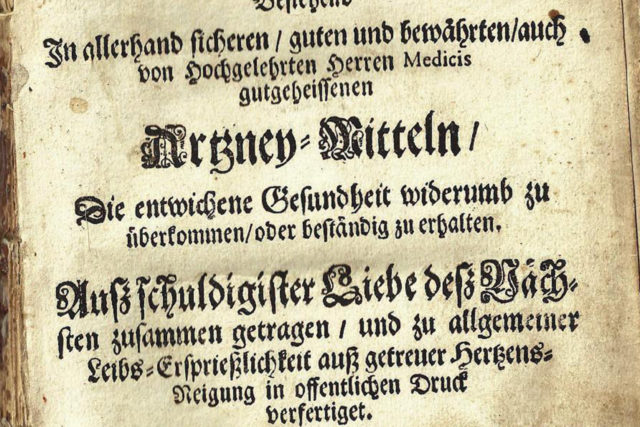 Bestehend
In allerhand sicheren / guten und bewährten / auch
von Hochgelehrten Herren Medicis
gutgeheissenen
Artzney-Mitteln /
Die entwichene Gesundheit widerumb zu
überkommen / oder beständig zu erhalten.
Auß schuldigister Liebe deß Näch-
sten zusammen getragen / und zu allgemeiner
Leibs-Ersprießlichkeit auß getreuer Hertzens-
Neigung in offentlichen Druck
verfertiget.